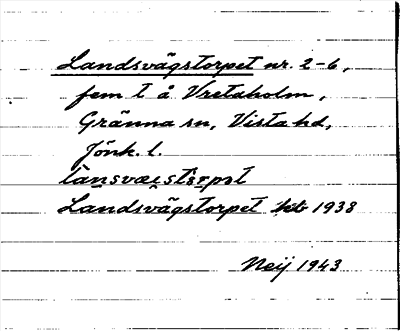 Landsvägstorpet nr. 2-6,
fem t å Vretaholm,
Gränna sn, Vista hd,
Jönk. l.
Landsvägstorpet 1938
Neij 1943